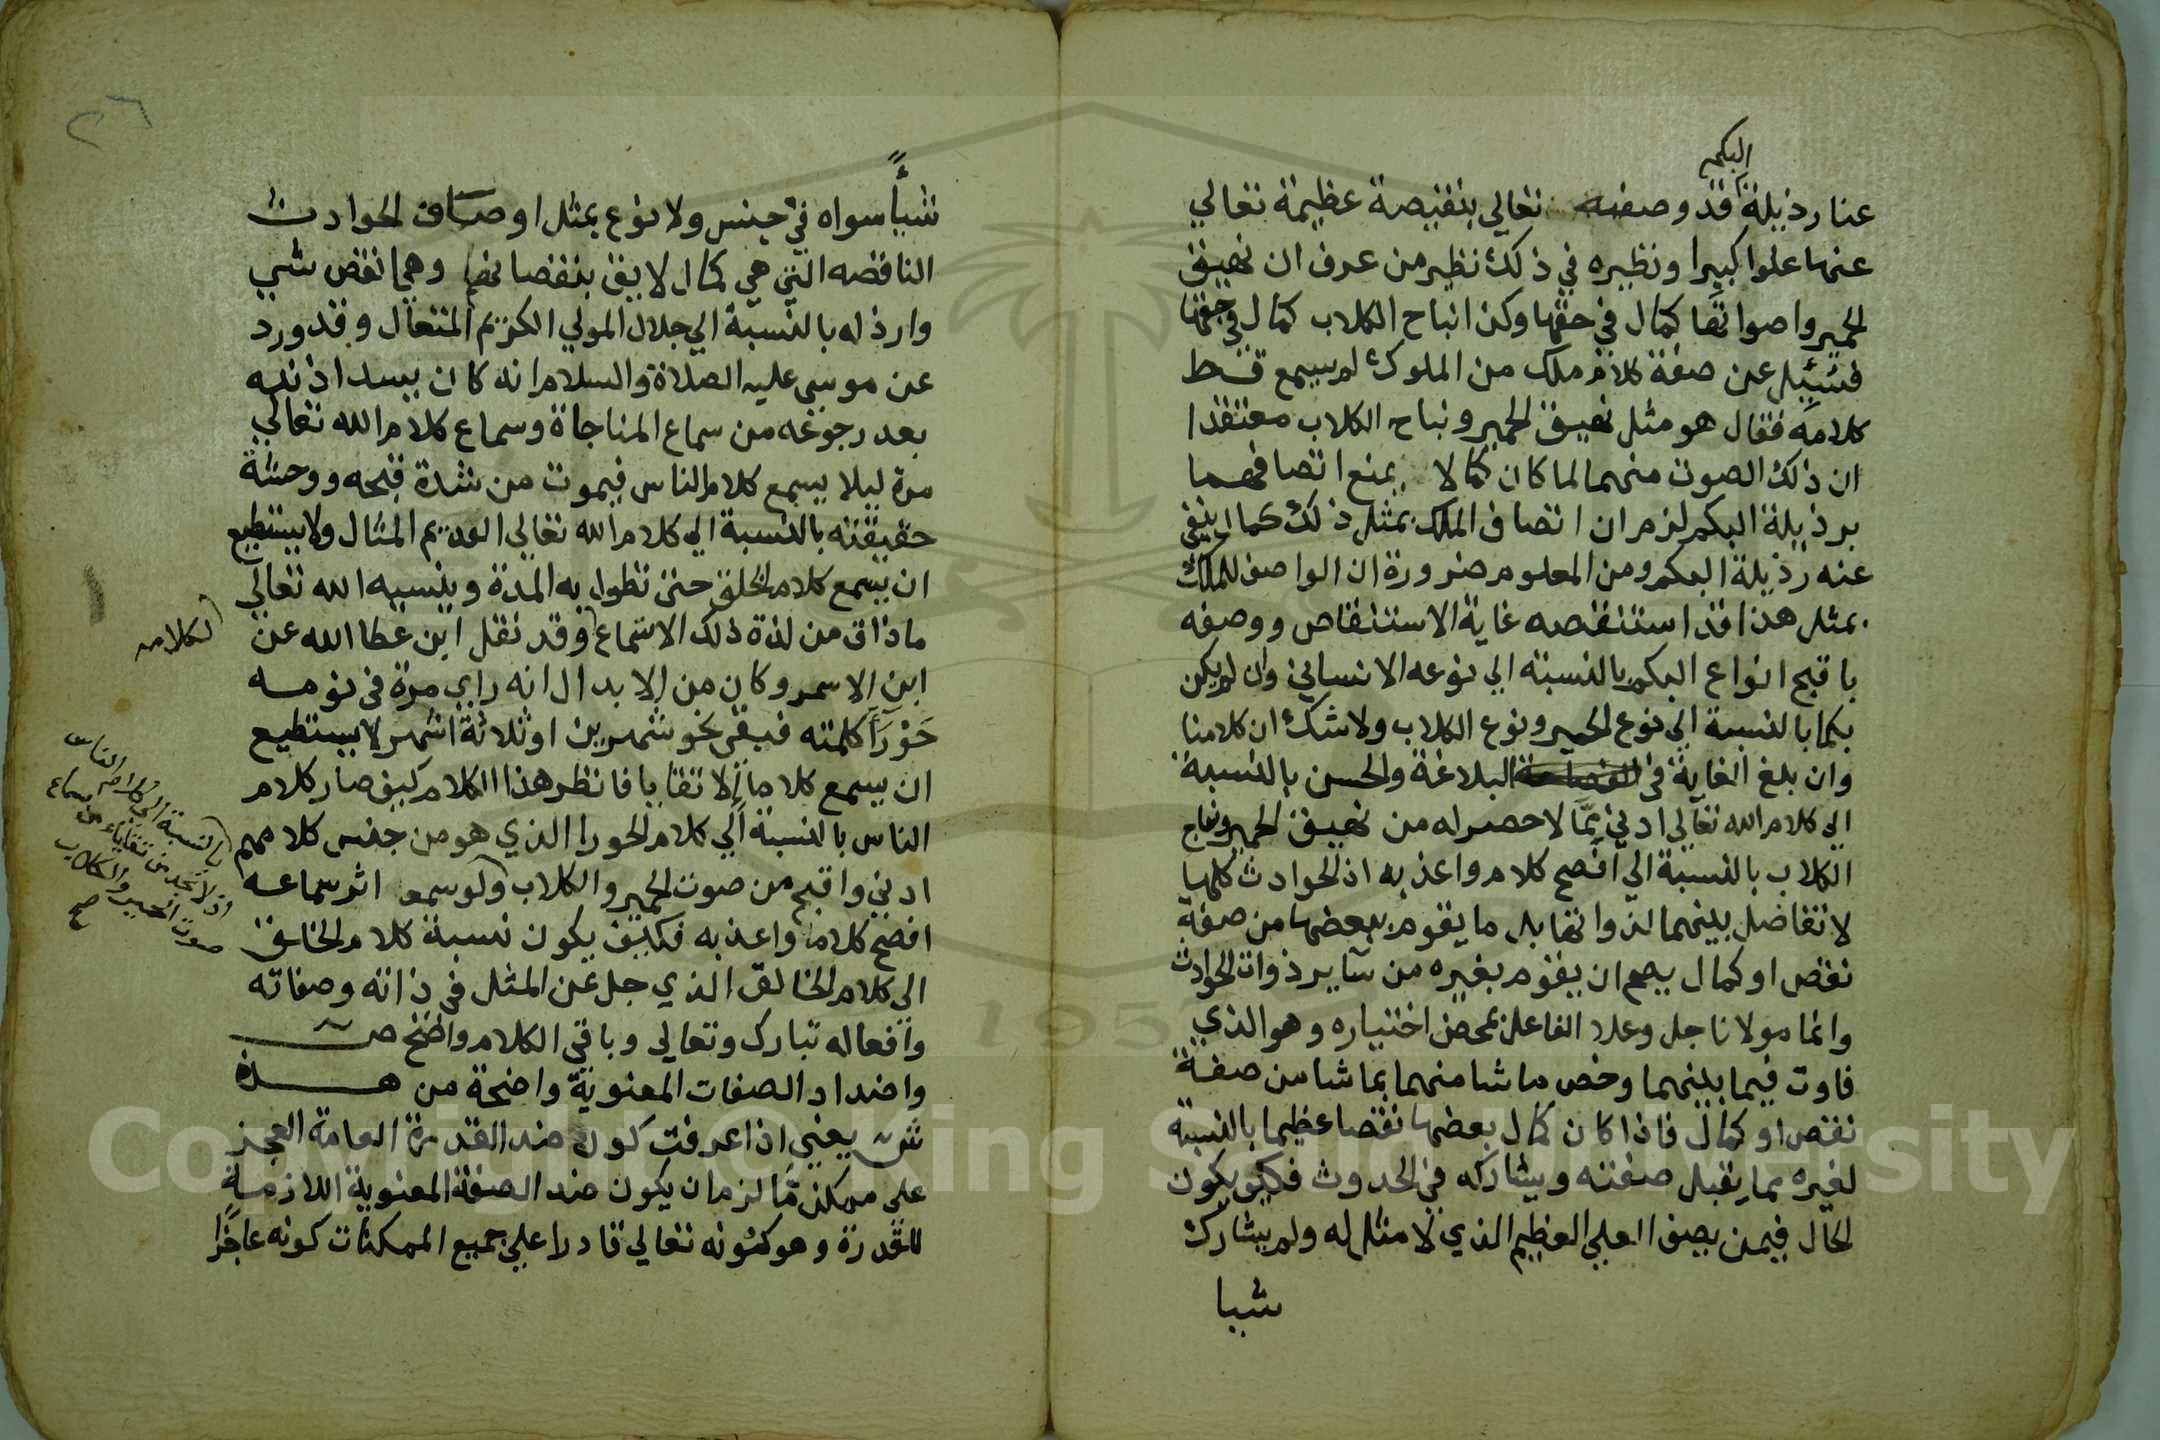 البكم
عنا رذيلة فقد وصفه تعالي بنقيصة عظيمة تعالي
عنها علوا كبيرا ونظيره في ذلك نظير من عرف ان نهيق
الحمير واصواتها كمال في حقها وكذا نباح الكلاب كمال في حقها
فسئيل عن صفة كلام ملك من الملوك لم يسمع قط
كلامه فقال هو مثل نهيق الحمير ونباح الكلاب معتقدا
ان ذلك الصوت منهما لما كان كمالا يمنع اتصافهما
برذيلة البكم لزم ان اتصاف الملك بمثل ذلك كمال ينفي
عنه رذيلة البكم ومن المعلوم ضرورة ان الواصف للملك
بمثل هذا قد استنقصه غاية الاستنقاص ووصفه
باقبح انواع البكم بالنسبته الي نوعه الانساني وان لم يكن
بكما بالنسبة الي نوع الحمير ونوع الكلاب ولا شك ان كلامنا
وان بلغ الغاية في الفصاحة البلاغة والحسن بالنسبة
الي كلام الله تعالي ادني بما لا حصر له من نهيق الحمير ونباح
الكلاب بالنسبة الي افصح كلام واعذبه اذ الحوادث كلها
لا تفاضل بينهما لذواتها بل ما يقوم ببعضها من صفة
نقص او كمال يصح ان يقوم بغيره من سآير ذوات الحوادث
وانما مولانا جل وعلا الفاعل بمحض اختياره وهو الذي
فاوت فيما بينهما وخص ما شا منهما بما شا من صفة
نقص او كمال فاذا كان كمال بعضها نقصا عظيما بالنسبة
لغيره مما يقبل صفته ويشاركه في الحدوث فكيف يكون
الحال فيمن يصف العلي العظيم الذي لا مثل له ولم يشارك
شيا
٢٦
شيأً سواه في جنس ولا نوع بمثل اوصاف الحوادث
الناقصه التي هي كمال لايق بنقصانها وهي انقص شي
وارذله بالنسبة الي جلال المولي الكريم المتعال وقد ورد
عن موسي عليه الصلاة والسلام انه كان يسد اذنيه
بعد رجوعه من سماع المناجاة وسماع كلام الله تعالي
مدة ليلا يسمع كلام الناس فيموت من شدة قبحه ووحشة
حقيقته بالنسبة الي كلام الله تعالي العديم المثال ولا يستطيع
ان يسمع كلام الخلق حتي تطول به المدة وينسيه الله تعالي
ما ذاق من لذة ذلك الاستماع وقد نقل ابن عطا الله عن
لكلامه
ابن الاسمر وكان من الابدال انه راي مرة في نومه
حَوْرَآ كلمته فبقي نحو شهرين او ثلاثة اشهر لا يستطيع
ان يسمع كلاما الا تقايا فانظر هذا الكلام كيف صار كلام
الناس بالنسبة الي كلام الحورا الذي هو من جنس كلامهم
ادني واقبح من صوت الحمير والكلاب ولو سمع اثر سماعه
بالنسبة الي كلام الناس
اذ لا نجد من تقاياء من سماع
صوت الحمير والكلاب
صح
افصح كلام واعذبه فكيف يكون نسبة كلام الخلق
الي كلام الخالق الذي جل عن المثل في ذاته وصفاته
وافعاله تبارك وتعالي وباقي الكلام واضح ص
واضداد الصفات المعنوية واضحة من هذه
ش يعني اذا عرفت كون ضد القدرة العامة العجز
علي ممكن مّا لزم ان يكون ضد الصفة المعنوية اللازمة
للقدرة وهو كونه تعالي قادرا علي جميع الممكنات كونه عاجزا